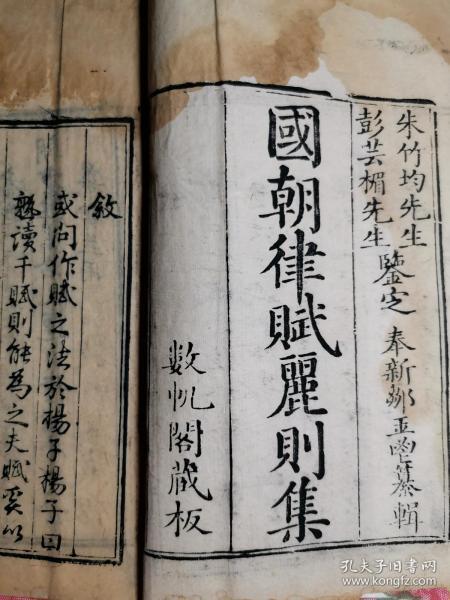 朱竹均先生
彭芸楣先生
鑒定
奉新鄒亟纂輯
國朝律賦麗則集
數帆閣藏板
敘
或问作賦之法於楊子楊子曰
熟讀千賦則能為之夫賦奚以
孔夫子旧书网
book.kongfz.com